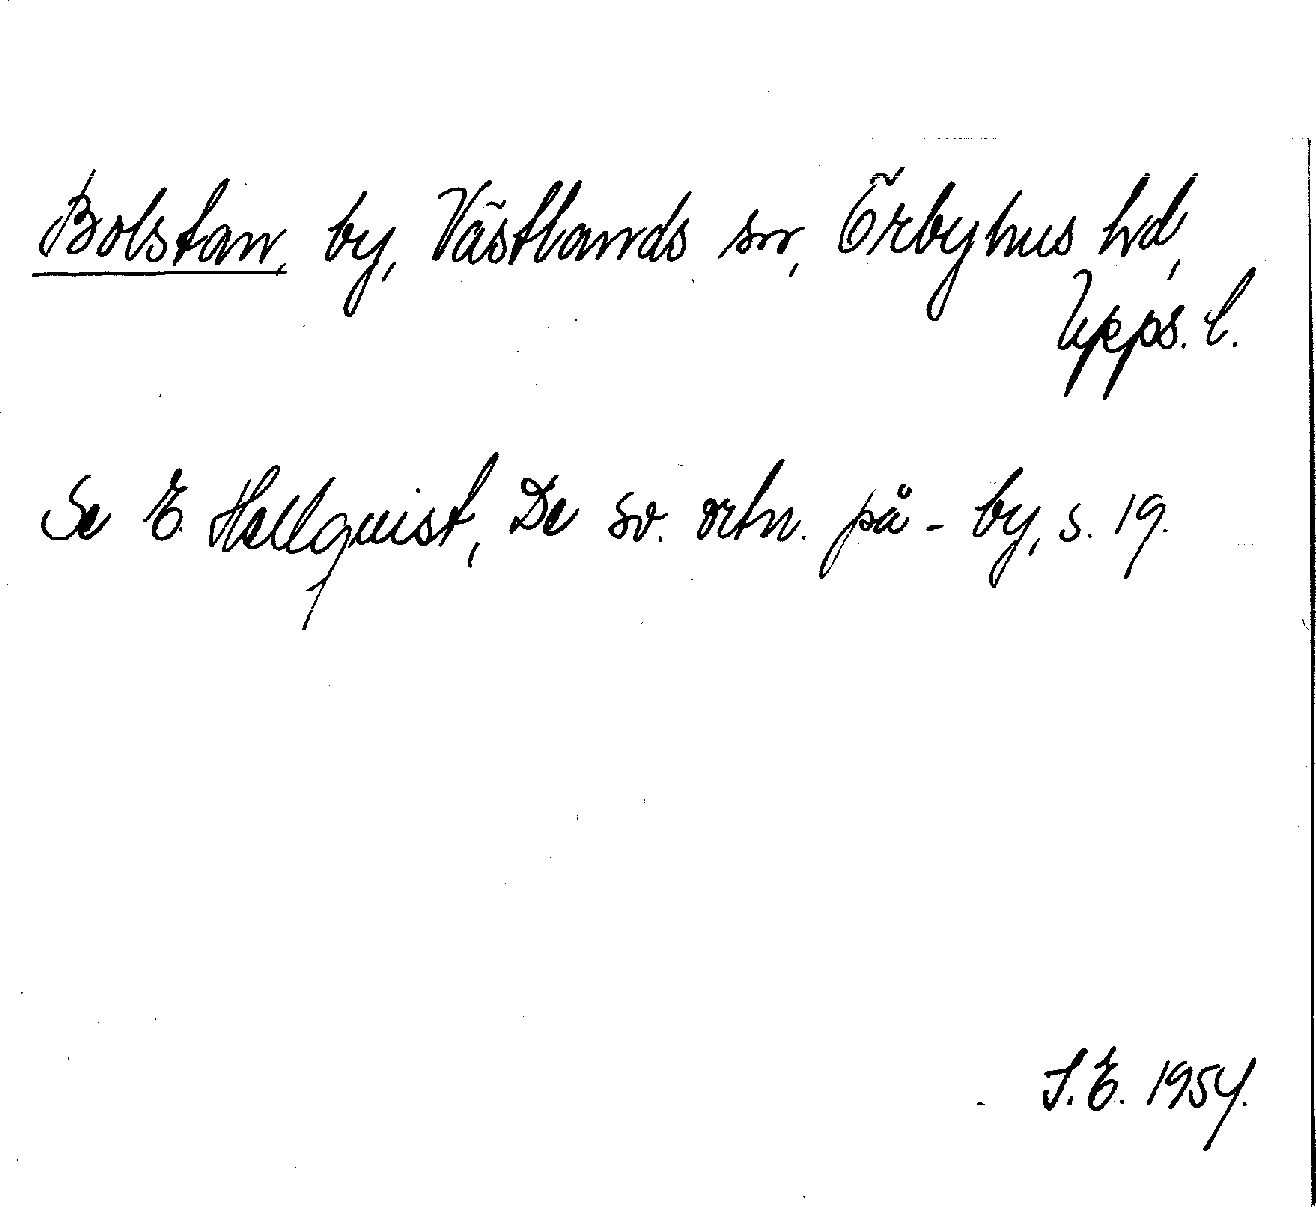 Bolstan, by, Västlands sn, Örbyhus hd,
Upps. l.
Se E. Hellquist, De sv. ortn. på -by, s. 19.
S.E. 1954.